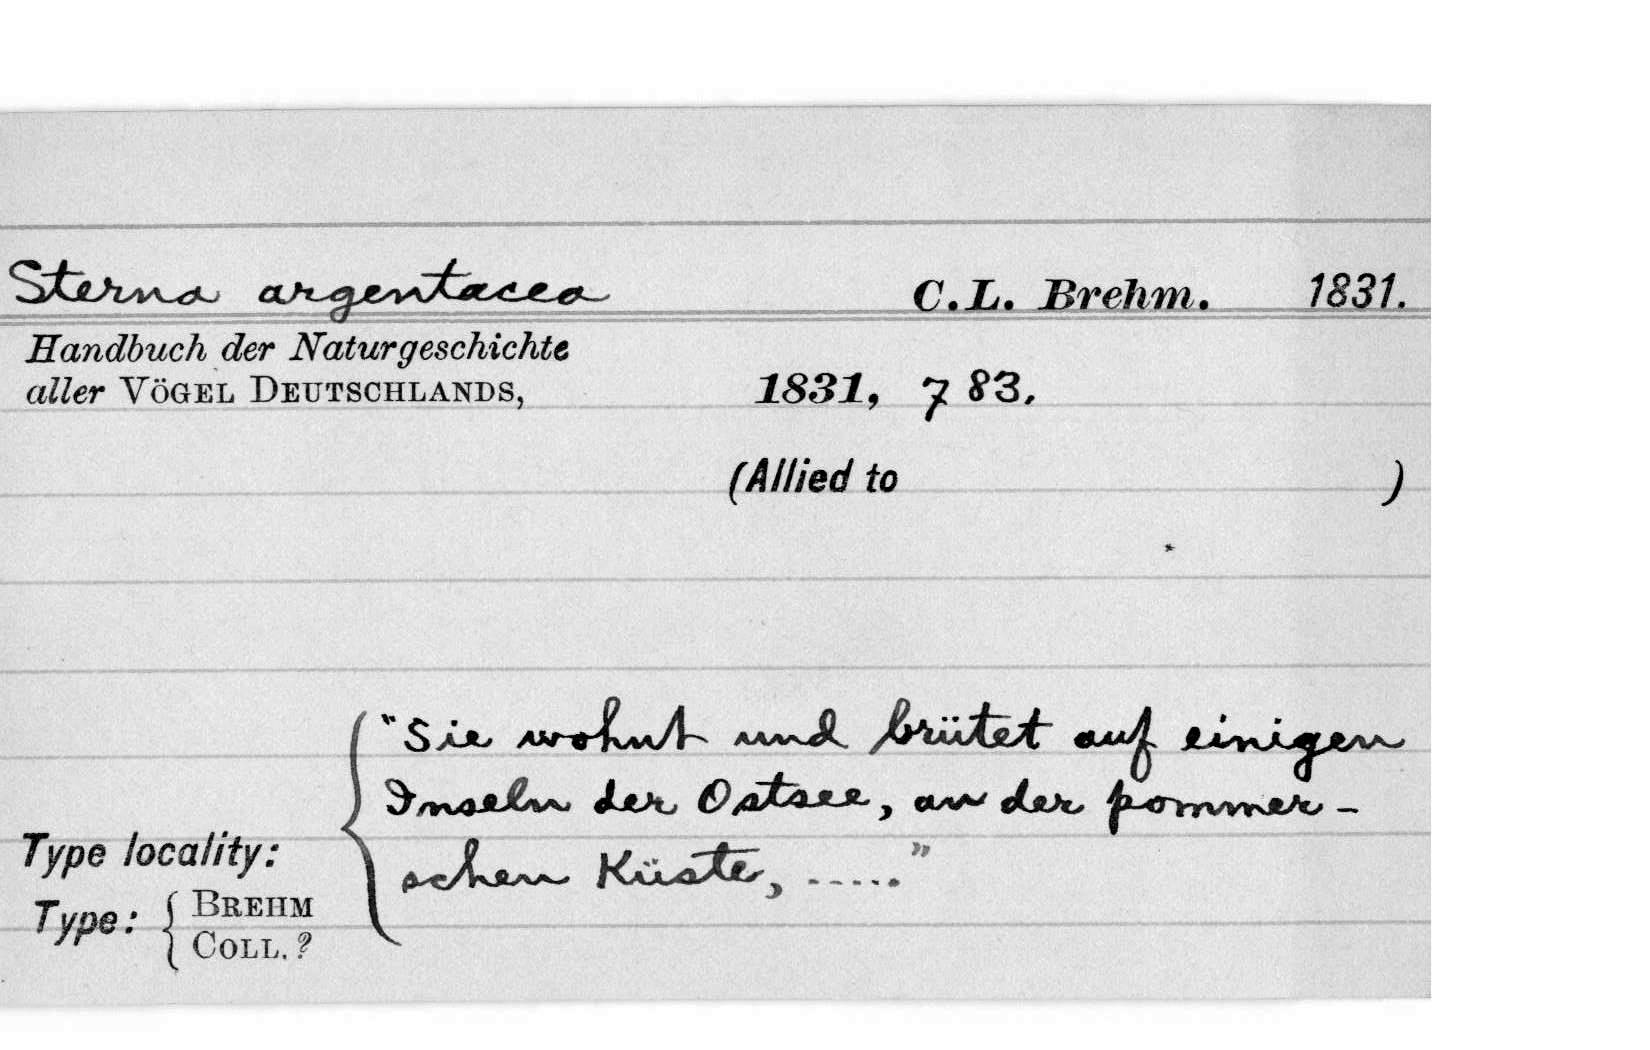 Sterna argentacea C.L. Brehm. 1831.
Handbuch der Naturgeschichte
aller VÖGEL DEUTSCHLANDS, 1831, 783.
(Allied to )
"Sie wohnt und brütet auf einigen
Inseln der Ostsee, an der pommer-
schen Küste, ....."
Type locality:
Type: { BREHM
COLL.?